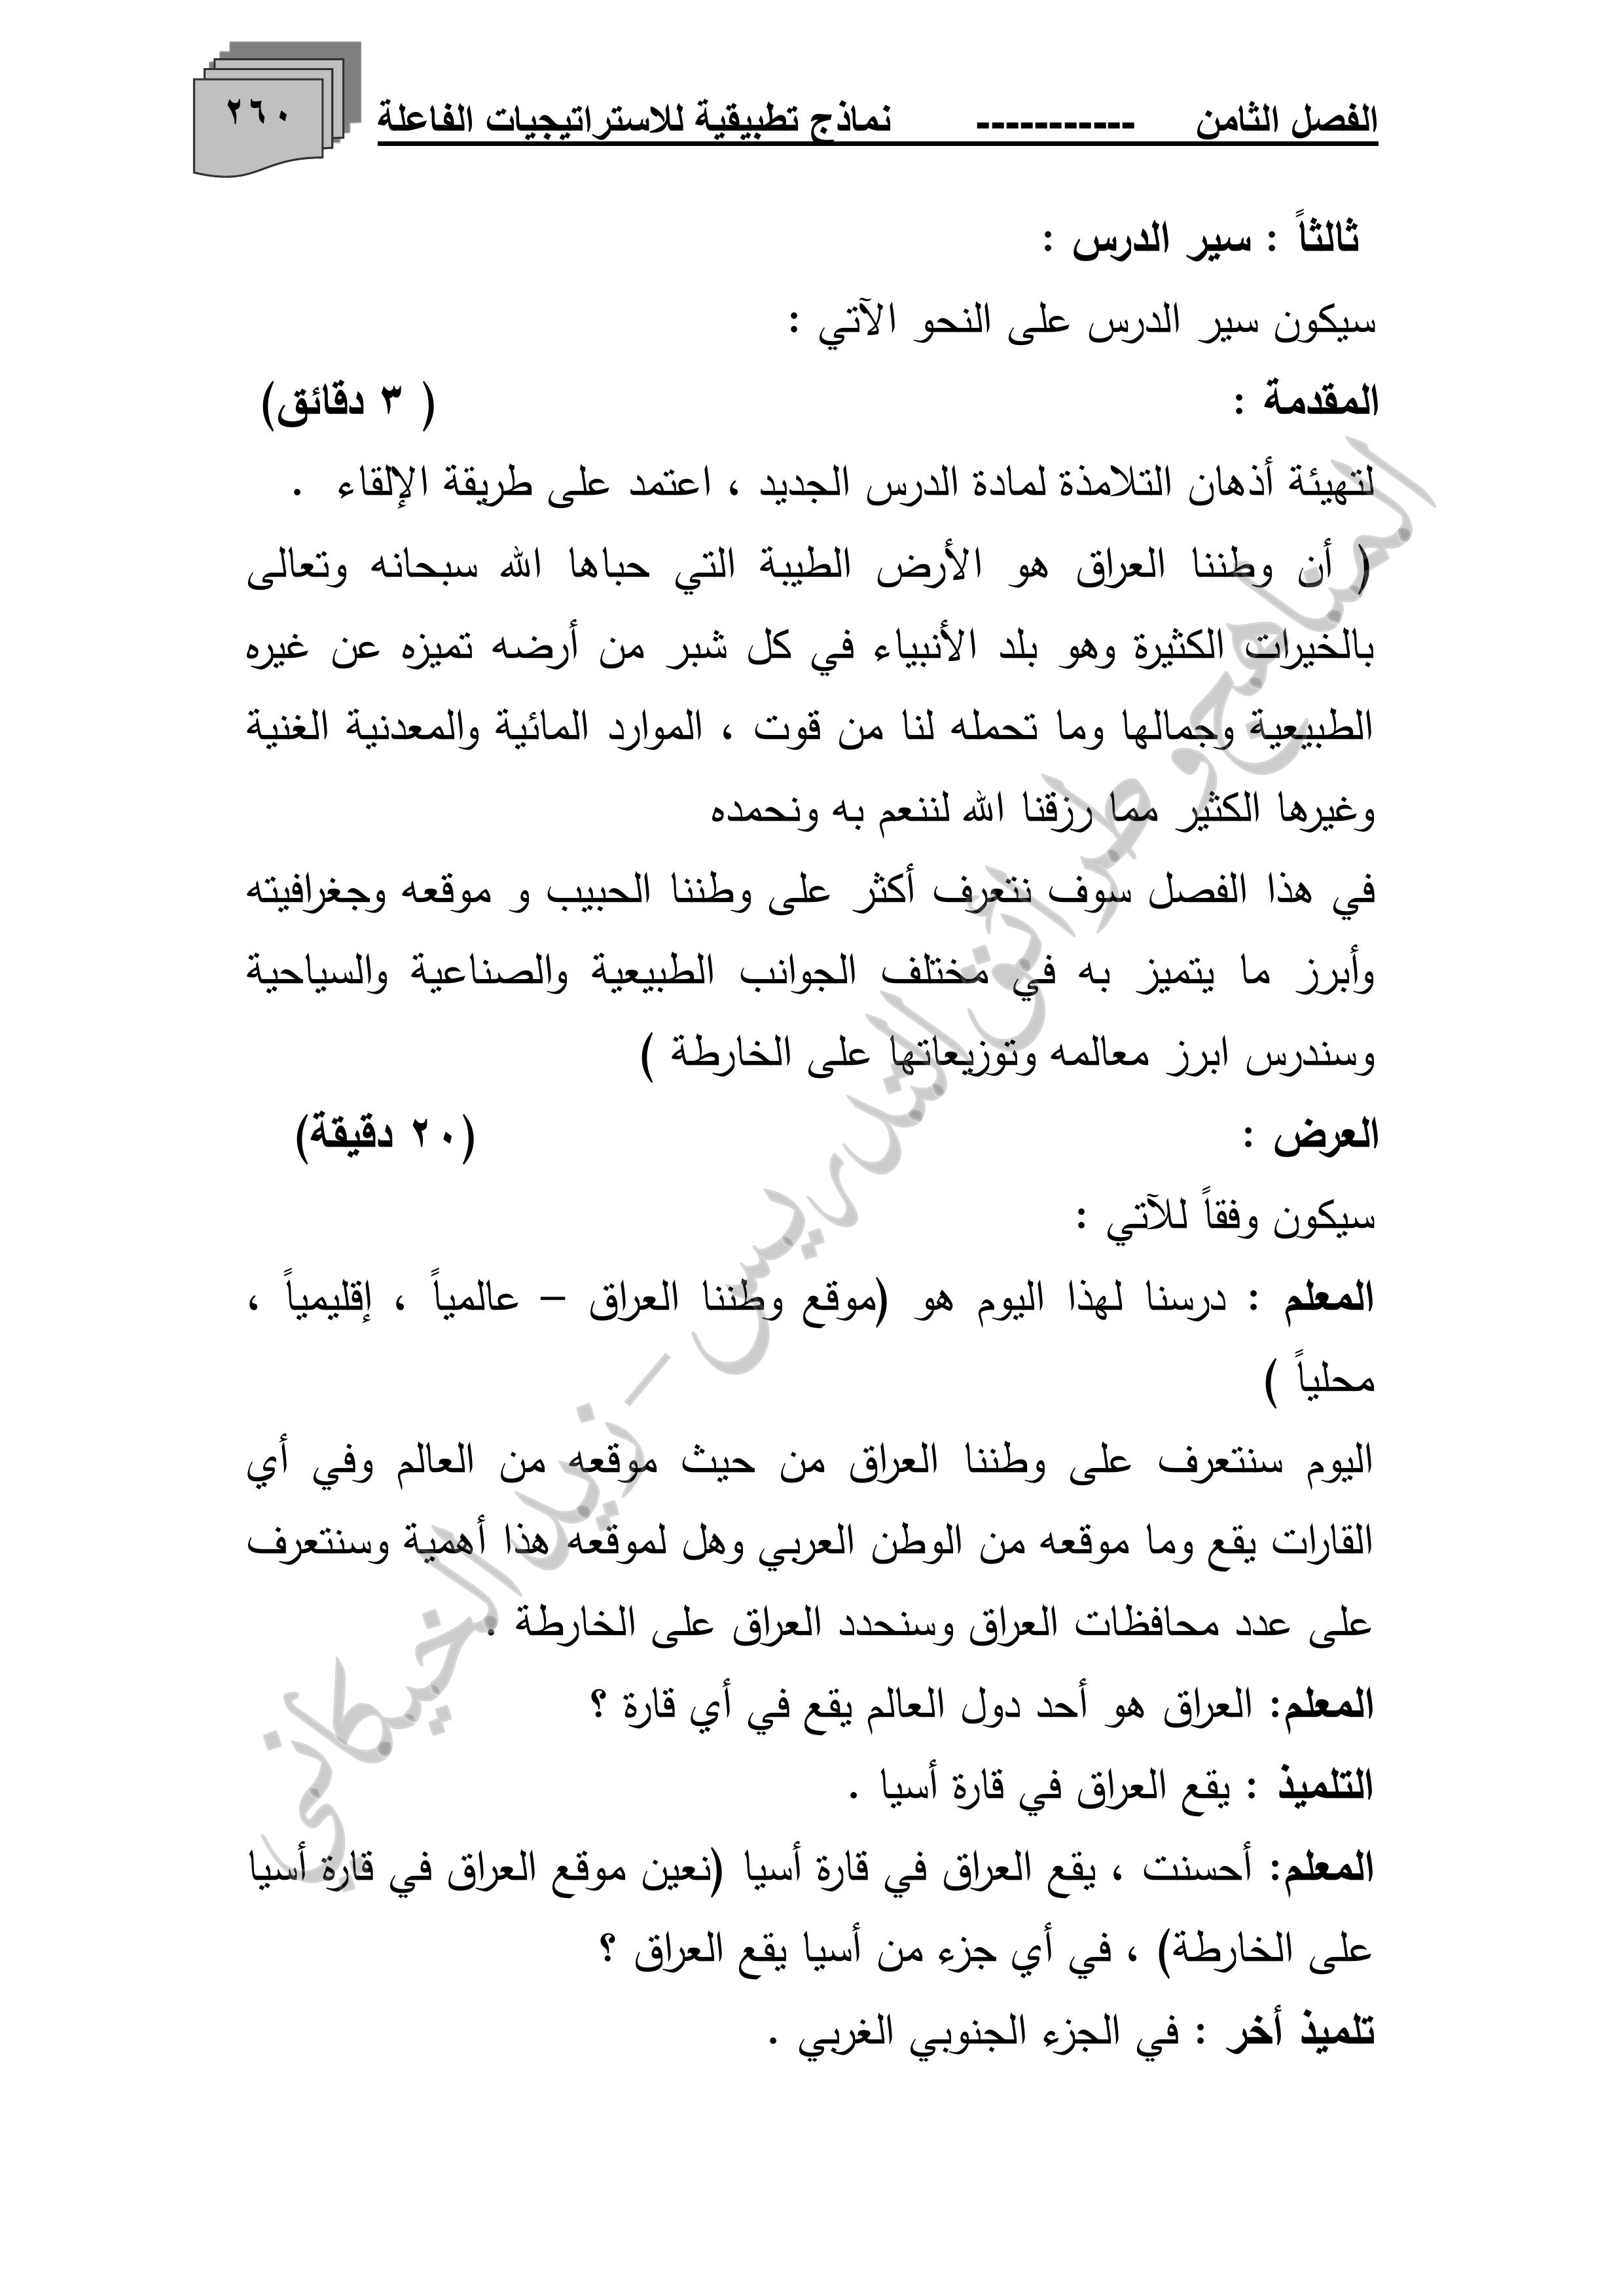 الفصل الثامن ----------- نماذج تطبيقية للاستراتيجيات الفاعلة
٢٦٠
ثالثاً : سير الدرس :
سيكون سير الدرس على النحو الآتي :
المقدمة : ( ٣ دقائق)
لتهيئة أذهان التلامذة لمادة الدرس الجديد ، اعتمد على طريقة الإلقاء .
( أن وطننا العراق هو الأرض الطيبة التي حباها الله سبحانه وتعالى
بالخيرات الكثيرة وهو بلد الأنبياء في كل شبر من أرضه تميزه عن غيره
الطبيعية وجمالها وما تحمله لنا من قوت ، الموارد المائية والمعدنية الغنية
وغيرها الكثير مما رزقنا الله لننعم به ونحمده
في هذا الفصل سوف نتعرف أكثر على وطننا الحبيب و موقعه وجغرافيته
وأبرز ما يتميز به في مختلف الجوانب الطبيعية والصناعية والسياحية
وسندرس ابرز معالمه وتوزيعاتها على الخارطة )
العرض : (٢٠ دقيقة)
سيكون وفقاً للآتي :
المعلم : درسنا لهذا اليوم هو (موقع وطننا العراق – عالمياً ، إقليمياً ،
محلياً )
اليوم سنتعرف على وطننا العراق من حيث موقعه من العالم وفي أي
القارات يقع وما موقعه من الوطن العربي وهل لموقعه هذا أهمية وسنتعرف
على عدد محافظات العراق وسنحدد العراق على الخارطة .
المعلم: العراق هو أحد دول العالم يقع في أي قارة ؟
التلميذ : يقع العراق في قارة أسيا .
المعلم: أحسنت ، يقع العراق في قارة أسيا (نعين موقع العراق في قارة أسيا
على الخارطة) ، في أي جزء من أسيا يقع العراق ؟
تلميذ أخر : في الجزء الجنوبي الغربي .
المناهج وطرائق التدريس – زيد الخيكاني